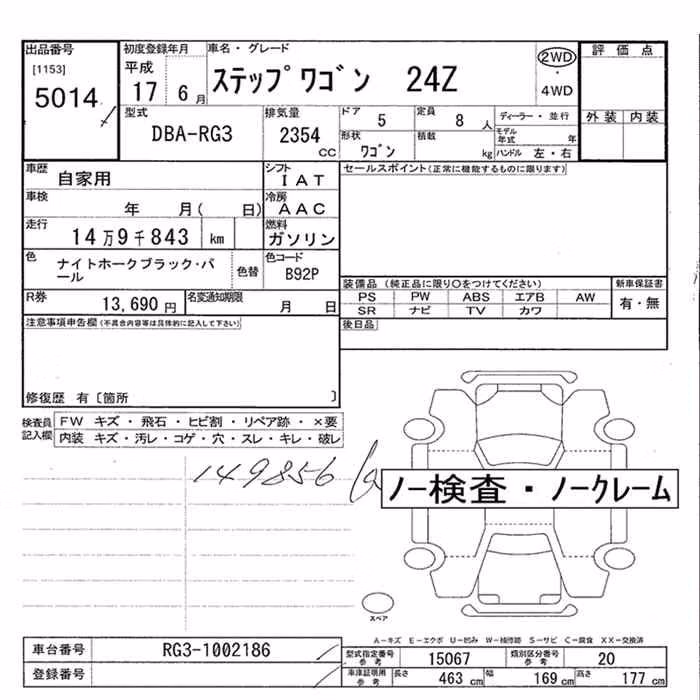 出品番号 初度登録年月 車名・グレード 評価点
[1153] 平成 ステップワゴン 24Z 2WD
5014 17 6月 4WD
型式 排気量 ドア 5 定員 8人 ディーラー・並行 外装 内装
DBA-RG3 2354 cc 形状 ワゴン 積載 kg モデル年式 年
ハンドル 左・右
車歴 自家用 シフト IAT セールスポイント(正常に機能するものに限ります)
車検 年 月( 日) 冷房 AAC
走行 14万9千843 km 燃料 ガソリン
色 ナイトホークブラック・パール 色替 色コード B92P
装備品 (純正品に限り○をつけてください) 新車保証書
PS PW ABS エアB AW 有・無
SR ナビ TV カワ
R券 13,690円 名変通知期限 月 日
後日品
注意事項申告欄(不具合内容等は具体的に記入して下さい)
修復歴 有〔箇所 〕
検査員記入欄 FW キズ・飛石・ヒビ割・リペア跡・×要
内装 キズ・汚レ・コゲ・穴・スレ・キレ・破レ
149856
ノー検査・ノークレーム
スペア
A-キズ E-エクボ U-凹み W-補修跡 S-サビ C-腐食 XX-交換済
車台番号 RG3-1002186 型式指定番号 参考 15067 類別区分番号 参考 20
登録番号 車庫証明用 参考 長さ 463 cm 幅 169 cm 高さ 177 cm